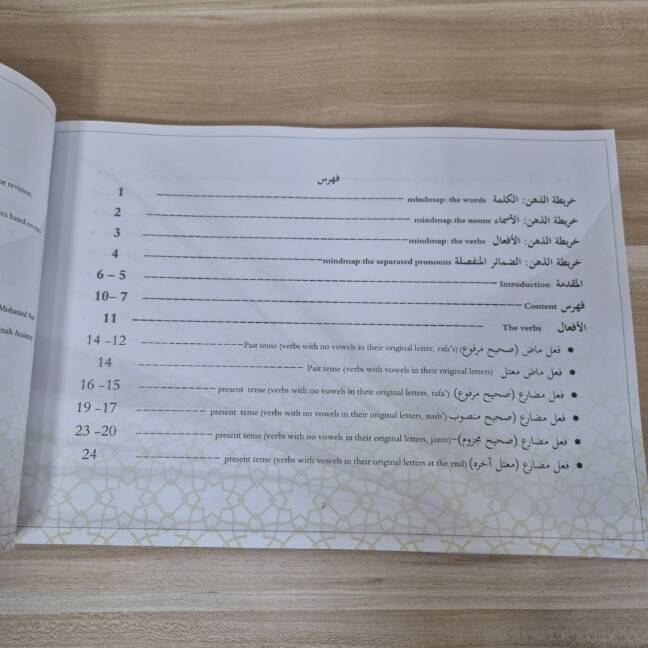 or revision,
ics based on
Mohamed
Academy
فهرس
خريطة الذهن: الكلمة mindmap: the words ---------- 1
خريطة الذهن: الأسماء mindmap: the nouns ---------- 2
خريطة الذهن: الأفعال mindmap: the verbs ---------- 3
خريطة الذهن: الضمائر المنفصلة mindmap: the separated pronouns ---------- 4
المقدمة Introduction ---------- 5 – 6
فهرس Content ---------- 7 –10
الأفعال The verbs ---------- 11
● فعل ماض (صحيح مرفوع) Past tense (verbs with no vowels in their original letter, rafa's) ---------- 12– 14
● فعل ماض معتل Past tense (verbs with vowels in their original letters) ---------- 14
● فعل مضارع (صحيح مرفوع) present tense (verbs with no vowels in their original letters, rafa') ---------- 15– 16
● فعل مضارع (صحيح منصوب) present tense (verbs with no vowels in their original letters, nasb') ---------- 17– 19
● فعل مضارع (صحيح مجزوم) present tense (verbs with no vowels in their original letters, jazm) ---------- 20– 23
● فعل مضارع (معتل آخره) present tense (verbs with vowels in their original letters at the end) ---------- 24